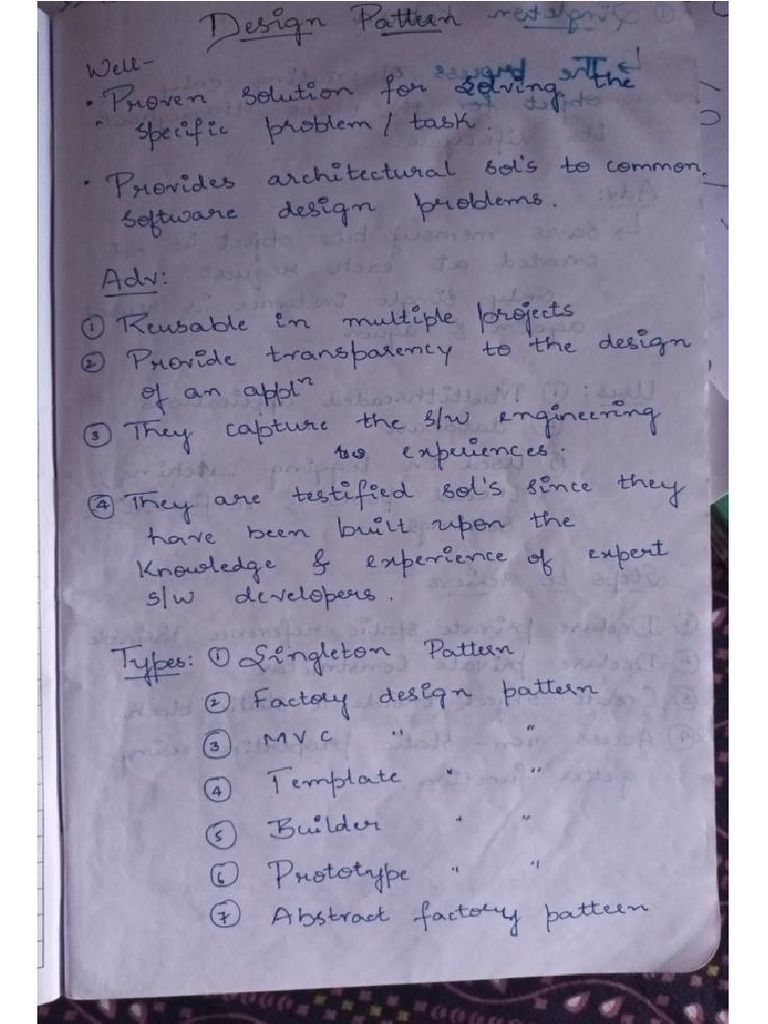 Design Pattern
Well-
• Proven solution for solving the
specific problem / task.
• Provides architectural sol's to common
software design problems.
Adv:
① Reusable in multiple projects
② Provide transparency to the design
of an applⁿ
③ They capture the s/w engineering
experiences.
④ They are testified sol's since they
have been built upon the
Knowledge & experience of expert
s/w developers.
Types: ① Singleton Pattern
② Factory design pattern
③ MVC " "
④ Template " "
⑤ Builder " "
⑥ Prototype " "
⑦ Abstract factory pattern